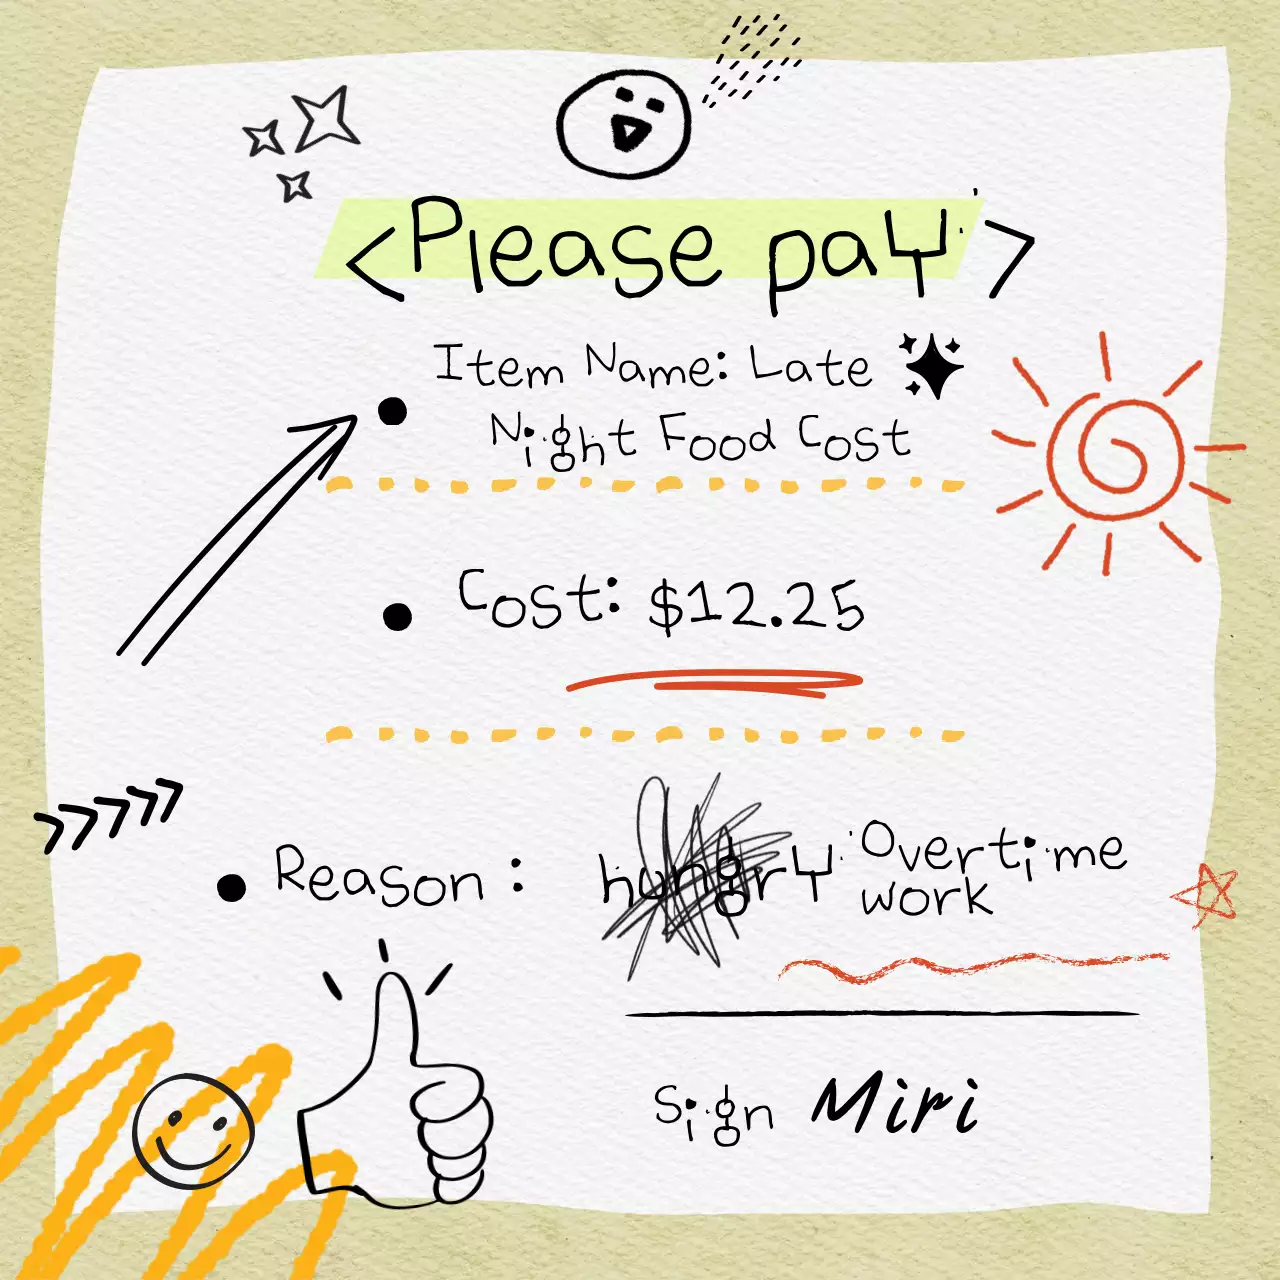 <Please pay>
Item Name: Late
Night Food Cost
Cost: $12.25
Reason : hungry Overtime
work
Sign Miri